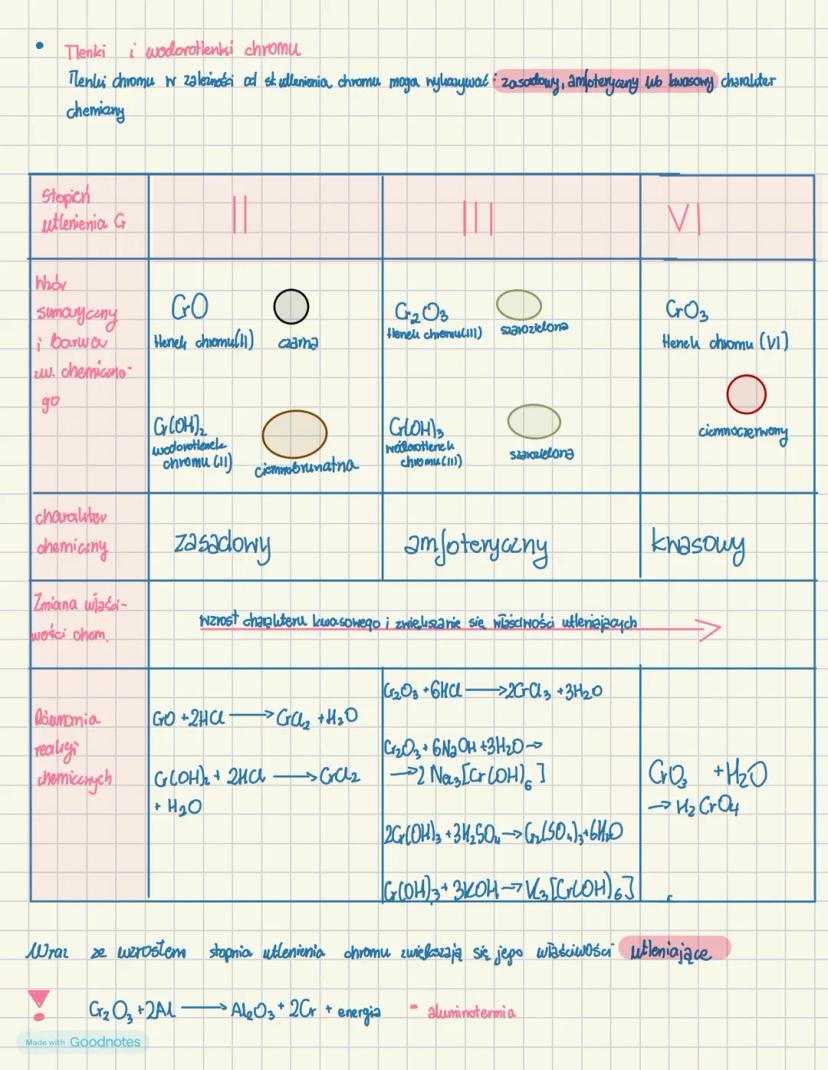 • Tlenki i wodorotlenki chromu
Tlenki chromu w zależności od st. utlenienia chromu mogą wykazywać: zasadowy, amfoteryczny lub kwasowy charakter
chemiczny
Stopień
utlenienia Cr
II
III
VI
Wzór
sumaryczny
i barwa
zw. chemiczne-
go
CrO
tlenek chromu(II)
czarna
Cr(OH)₂
wodorotlenek
chromu (II)
ciemnobrunatna
Cr₂O₃
tlenek chromu(III)
szarozielona
Cr(OH)₃
wodorotlenek
chromu(III)
szarozielona
CrO₃
tlenek chromu (VI)
ciemnoczerwony
charakter
chemiczny
zasadowy
amfoteryczny
kwasowy
Zmiana właści-
wości chem.
wzrost charakteru kwasowego i zwiększanie się właściwości utleniających
Równania
reakcji
chemicznych
CrO + 2HCl → CrCl₂ + H₂O
Cr(OH)₂ + 2HCl → CrCl₂
+ H₂O
Cr₂O₃ + 6HCl → 2CrCl₃ + 3H₂O
Cr₂O₃ + 6NaOH + 3H₂O →
→ 2 Na₃[Cr(OH)₆]
2Cr(OH)₃ + 3H₂SO₄ → Cr₂(SO₄)₃ + 6H₂O
Cr(OH)₃ + 3KOH → K₃[Cr(OH)₆]
CrO₃ + H₂O
→ H₂CrO₄
Wraz ze wzrostem stopnia utlenienia chromu zwiększają się jego właściwości utleniające
! Cr₂O₃ + 2Al → Al₂O₃ + 2Cr + energia - aluminotermia
Made with Goodnotes